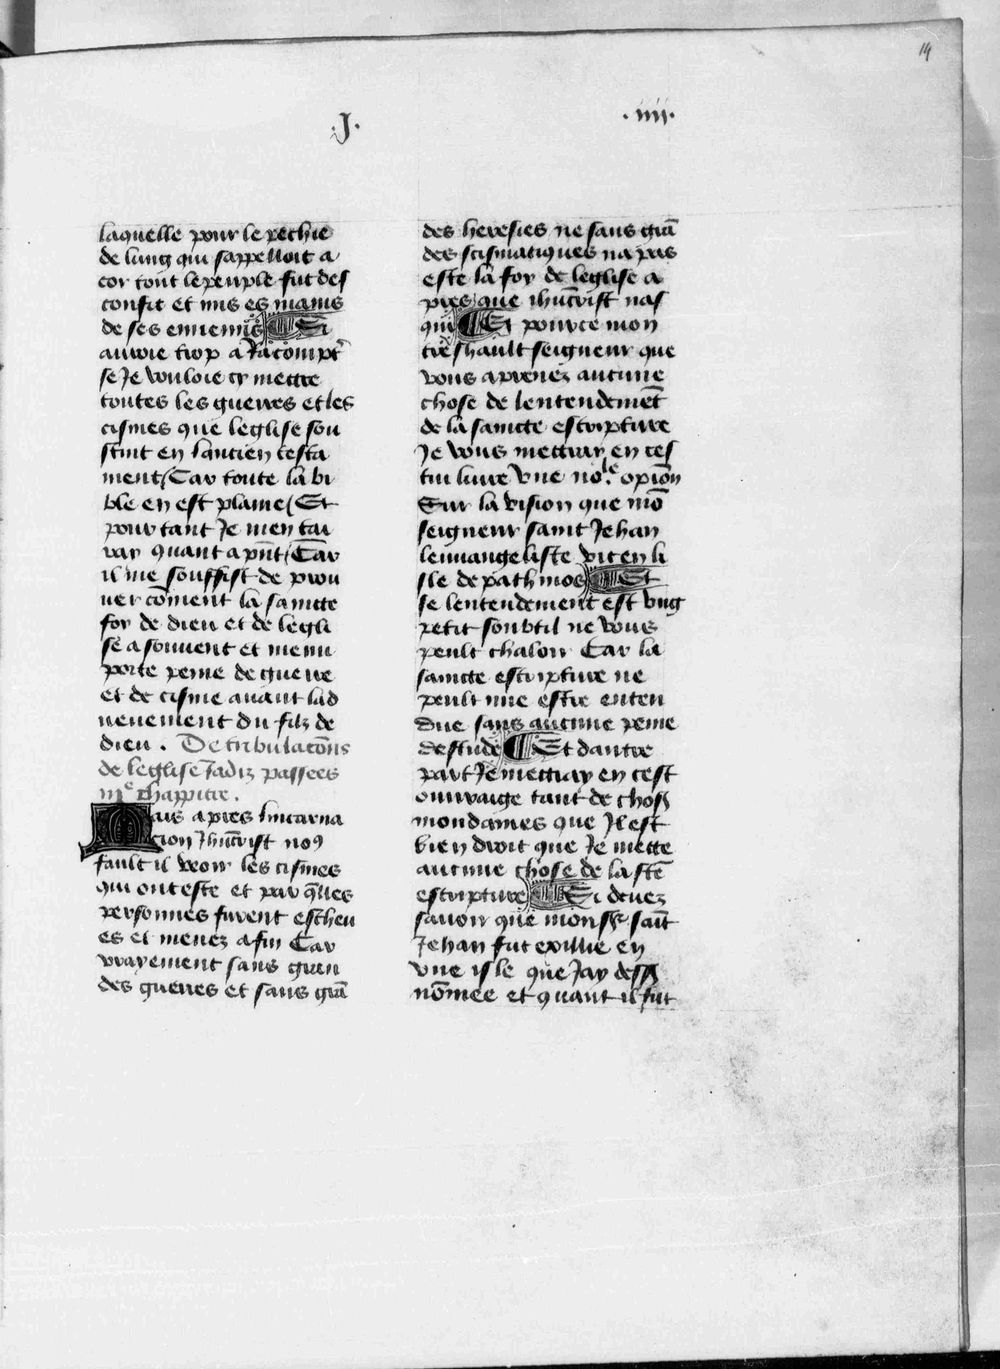 14
.J.
.iiii.
laquelle pour le pechie
de lung qui sappelloit a
cor tout le peuple fut des
confit et mis es mains
de ses ennemis Et
auroie trop a Racompter
se Je vouloie cy mettre
toutes les guerres et les
cismes que leglise sou
stint en lancien testa
ment / Car toute la bi
ble en est plaine / Et
pour tant Je men tai
ray quant a pnt / Car
il me souffist de prou
uer coment la saincte
foy de dieu et de legli
se a souuent et menu
porte peine de guerre
et de cisme auant lad
uenement du filz de
dieu . De tribulacons
de leglise Jadiz passees
iiie chappitre .
Mais apres lincarna
cion Jhucrist nous
fault il veoir les cismes
qui ont este et par qlles
personnes furent escheu
es et menez a fin Car
vrayement sans gran
des guerres et sans gra
des heresies ne sans gra
des scismatiques na pas
este la foy de leglise a
pres que ihucrist nas
qui Et pource mon
treshault seigneur que
vous aprenez aucune
chose de lentendement
de la saincte escripture
Je vous mettray en ces
tui liure vne noble opion
Sur la vision que mo
seigneur saint Jehan
leuuangeliste vit en li
sle de pathmos Et
se lentendement est vng
petit soubtil ne vous
peult chaloir Car la
saincte escripture ne
peult mie estre enten
due sans aucune peine
destude Et dautre
part Je mettray en cest
ouuraige tant de choses
mondaines que Jl est
bien droit que Je mette
aucune chose de la scte
escripture Si deuez
sauoir que monsr sait
Jehan fut exillie en
vne isle que Jay dess
nomee et quant il fut